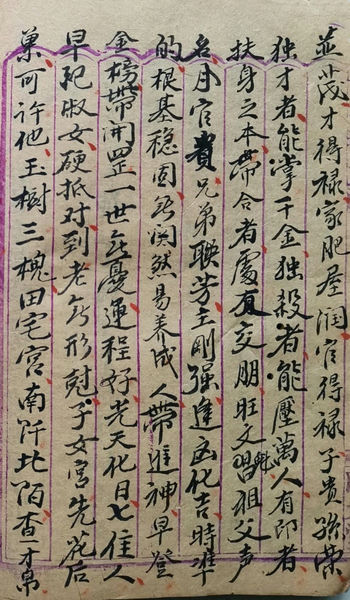 並茂才得禄家肥屋润官得禄子貴孫荣
独才者能掌千金独殺者能壓萬人有印者
扶身之本带合者處友交朋旺文昌魁祖父声
名月官貴兄弟联芳主剛强逢凶化吉時準
的根基穩固关然易养成人带進神早登
金榜带開罡一世無憂運程好光天化日七住人
早配淑女硬抵对到老無形尅子女宫先花后
菓可许他玉樹三槐田宅宫南阡北陌查才帛